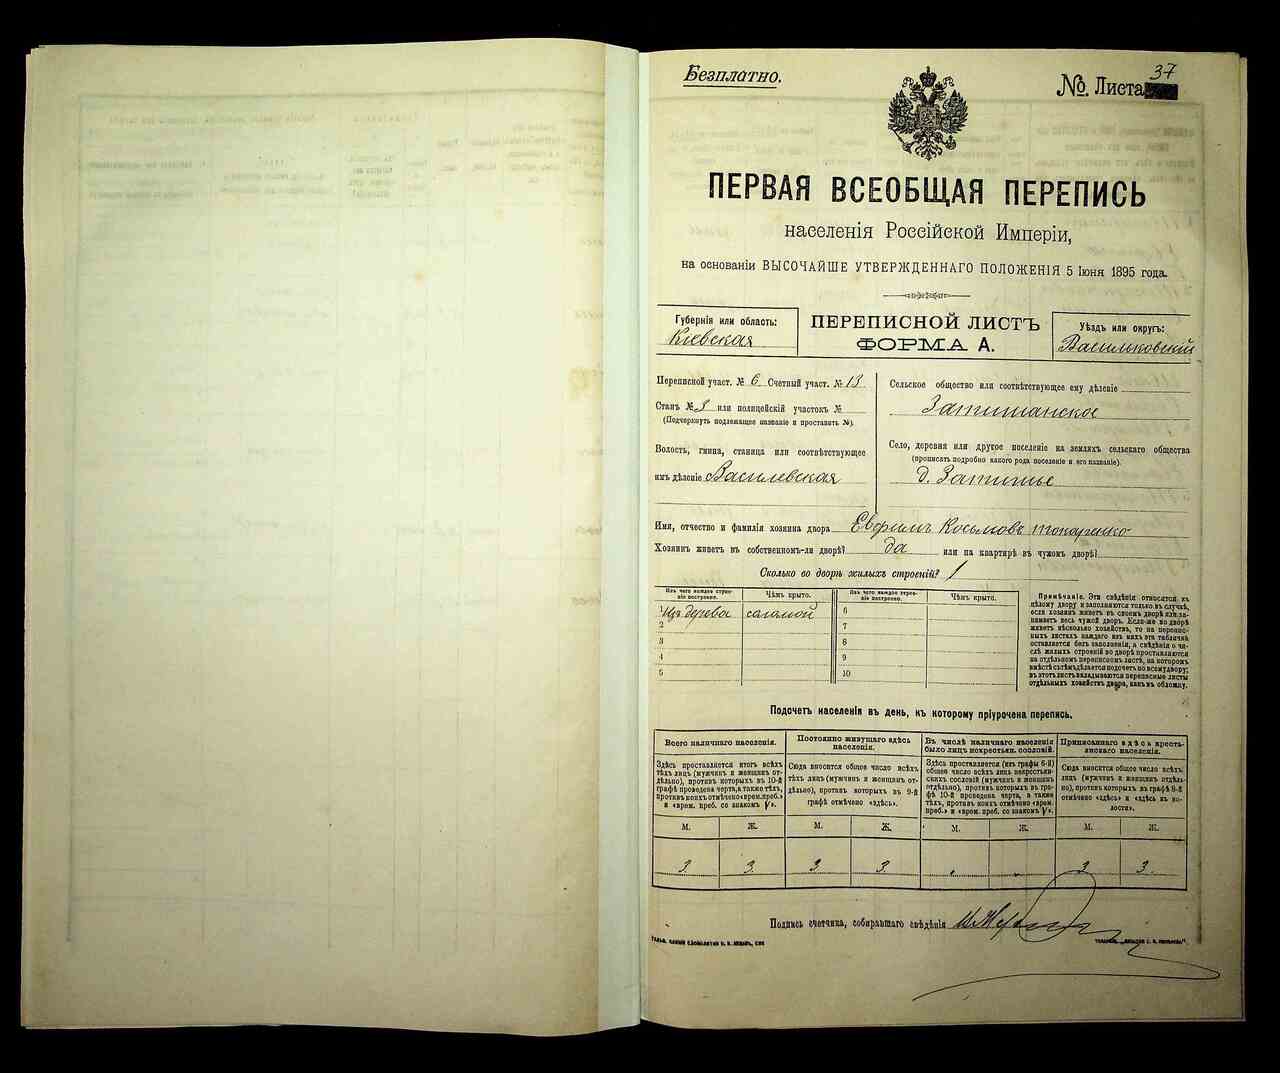 Безплатно.
№. Листа 37
ПЕРВАЯ ВСЕОБЩАЯ ПЕРЕПИСЬ
населенія Россійской Имперіи,
на основаніи ВЫСОЧАЙШЕ УТВЕРЖДЕННАГО ПОЛОЖЕНІЯ 5 Іюня 1895 года.
Губернія или область:
Кіевская
ПЕРЕПИСНОЙ ЛИСТЪ
ФОРМА А.
Уѣздъ или округъ:
Васильковскій
Переписной участ. № 6 Счетный участ. № 13
Станъ № 3 или полицейскій участокъ №
(Подчеркнуть подлежащее названіе и проставить №).
Волость, гмина, станица или соотвѣтствующее
имъ дѣленіе Василевская
Сельское общество или соотвѣтствующее ему дѣленіе
Затишанское
Село, деревня или другое поселеніе на земляхъ сельскаго общества
(прописать подробно какого рода поселеніе и его названіе).
д. Затишье
Имя, отчество и фамилія хозяина двора Евфимъ Косьмовъ Токаренко
Хозяинъ живетъ въ собственномъ-ли дворѣ? да или на квартирѣ въ чужомъ дворѣ?
Сколько во дворѣ жилыхъ строеній? 1
Изъ чего каждое строеніе построено.
Чѣмъ крыто.
Изъ чего каждое строеніе построено.
Чѣмъ крыто.
1 Изъ дерева соломой
2
3
4
5
6
7
8
9
10
Примѣчаніе. Эти свѣдѣнія относятся къ
цѣлому двору и заполняются только въ случаѣ,
если хозяинъ живетъ въ своемъ дворѣ или занимаетъ
весь чужой дворъ. Если-же во дворѣ
живетъ нѣсколько хозяйствъ, то на переписныхъ
листахъ каждаго изъ нихъ эта табличка
оставляется безъ заполненія, а свѣдѣнія о числѣ
жилыхъ строеній во дворѣ проставляются
на отдѣльномъ переписномъ листѣ, на которомъ
вмѣстѣ съ тѣмъ дѣлается подсчетъ по всему двору;
въ этотъ листъ вкладываются переписные листы
отдѣльныхъ хозяйствъ двора, какъ въ обложку.
Подсчетъ населенія въ день, къ которому пріурочена перепись.
Всего наличнаго населенія.
Здѣсь проставляется итогъ всѣхъ
тѣхъ лицъ (мужчинъ и женщинъ отдѣльно),
противъ которыхъ въ 10-й
графѣ проведена черта, а также тѣхъ,
противъ коихъ отмѣчено «врем. преб.»
и «врем. преб. со знакомъ V».
Постоянно живущаго здѣсь
населенія.
Сюда вносится общее число всѣхъ
тѣхъ лицъ (мужчинъ и женщинъ отдѣльно),
противъ которыхъ въ 9-й
графѣ отмѣчено «здѣсь».
Въ числѣ наличнаго населенія
было лицъ некрестьян. сословій.
Здѣсь проставляется (изъ графы 6-й)
общее число всѣхъ лицъ некрестьянскихъ
сословій (мужчинъ и женщинъ
отдѣльно), противъ которыхъ въ графѣ
10-й проведена черта, а также
тѣхъ, противъ коихъ отмѣчено «врем.
преб.» и «врем. преб. со знакомъ V».
Приписаннаго здѣсь крестьянскаго
населенія.
Сюда вносится общее число всѣхъ
лицъ (мужчинъ и женщинъ отдѣльно),
противъ которыхъ въ графѣ 8-й
отмѣчено «здѣсь» и «здѣсь въ волости».
М. Ж. М. Ж. М. Ж. М. Ж.
3. 3. 3 3. „ „ 3 3.
Подпись счетчика, собиравшаго свѣдѣнія